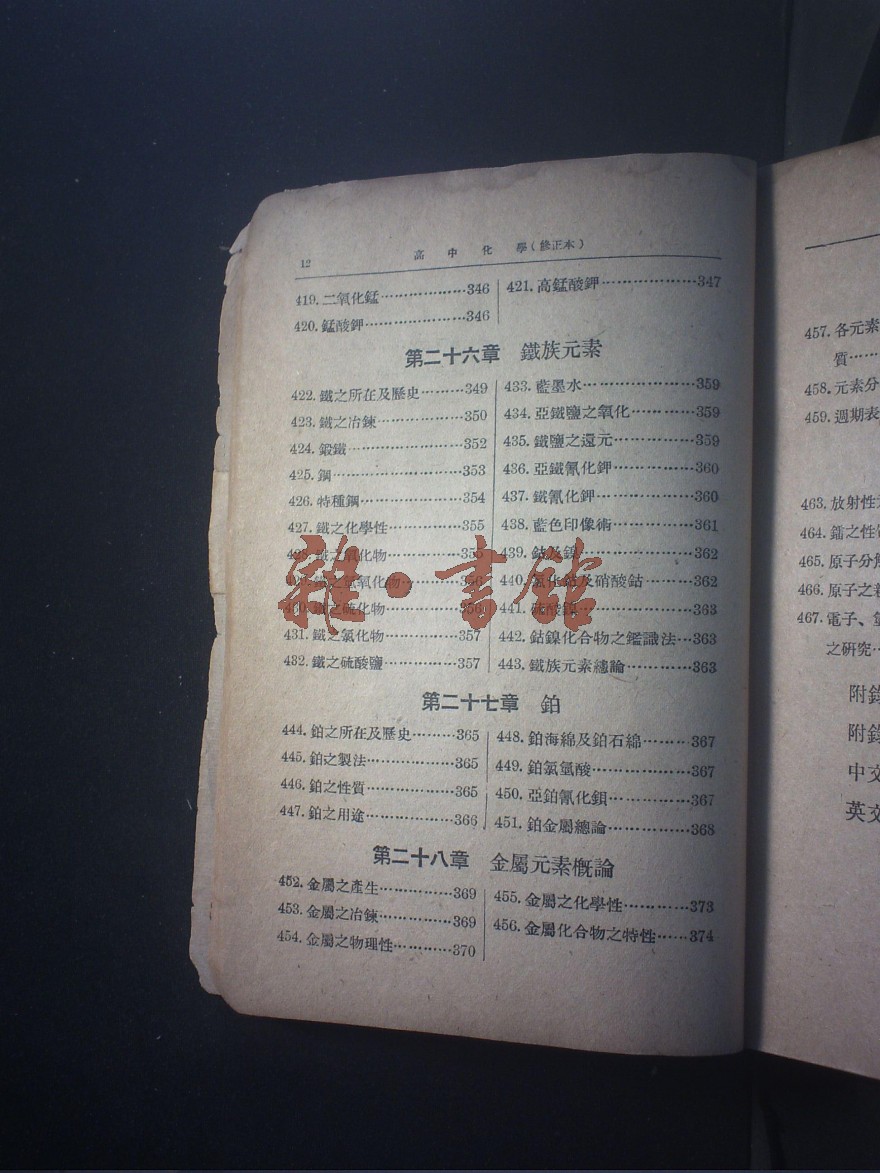 12 高中化學(修正本)
419. 二氧化錳··················346
420. 錳酸鉀·····················346
421. 高錳酸鉀·····················347
第二十六章 鐵族元素
422. 鐵之所在及歷史·········349
423. 鐵之冶鍊··················350
424. 鍛鐵························352
425. 鋼···························353
426. 特種鋼·····················354
427. 鐵之化學性···············355
428. 鐵之氧化物···············355
429. 鐵之氫氧化物············356
430. 鐵之硫化物···············356
431. 鐵之氯化物···············357
432. 鐵之硫酸鹽···············357
433. 藍墨水························359
434. 亞鐵鹽之氧化···············359
435. 鐵鹽之還元··················359
436. 亞鐵氰化鉀··················360
437. 鐵氰化鉀·····················360
438. 藍色印像術··················361
439. 鈷及鎳························362
440. 氯化鈷及硝酸鈷············362
441. 硫酸鎳························363
442. 鈷鎳化合物之鑑識法···363
443. 鐵族元素總論············363
雜·書館
第二十七章 鉑
444. 鉑之所在及歷史·········365
445. 鉑之製法··················365
446. 鉑之性質··················365
447. 鉑之用途··················366
448. 鉑海綿及鉑石綿·········367
449. 鉑氯氫酸··················367
450. 亞鉑氰化鋇···············367
451. 鉑金屬總論···············368
第二十八章 金屬元素概論
452. 金屬之產生···············369
453. 金屬之冶鍊···············369
454. 金屬之物理性············370
455. 金屬之化學性············373
456. 金屬化合物之特性······374
457. 各元素
質······
458. 元素分
459. 週期表
463. 放射性
464. 鐳之性
465. 原子分
466. 原子之
467. 電子、
之研究··
附錄
附錄
中文
英文